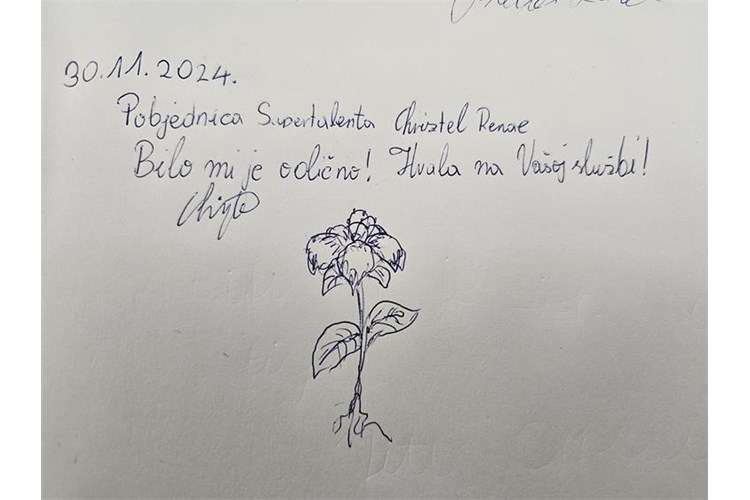 30.11.2024.
Pobjednica Supertalenta Chriztel Renae
Bilo mi je odlično! Hvala na Vašoj službi!